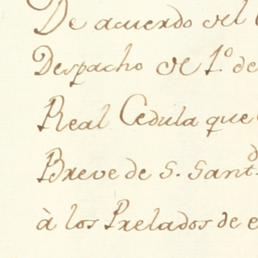 De acuerdo del
Despacho de 1.º de
Real Cedula que
Breve de S. Sant.d
à los Prelados de e